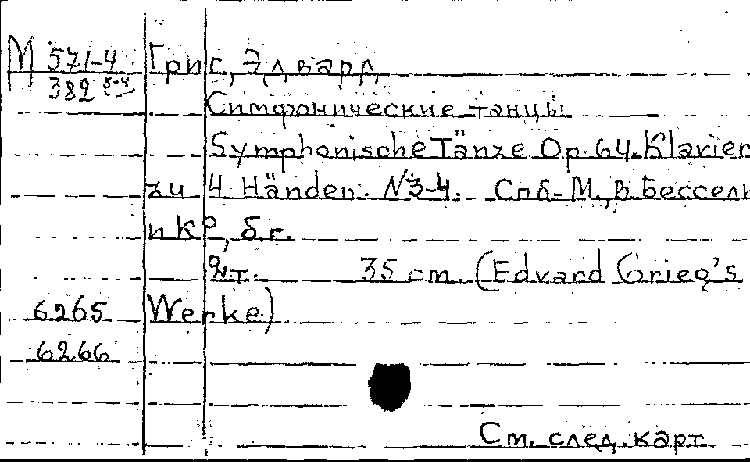 М 571-4 Григ, Эдвард
382 5-4
Симфонические танцы
Symphonische Tänze Op. 64. Klavier
zu 4 Händen. №3-4. Спб-М., В. Бессель
и Ко, б.г.
2 т. 35 cm. (Edvard Grieg's
6265 Werke)
6266
См. след. карт